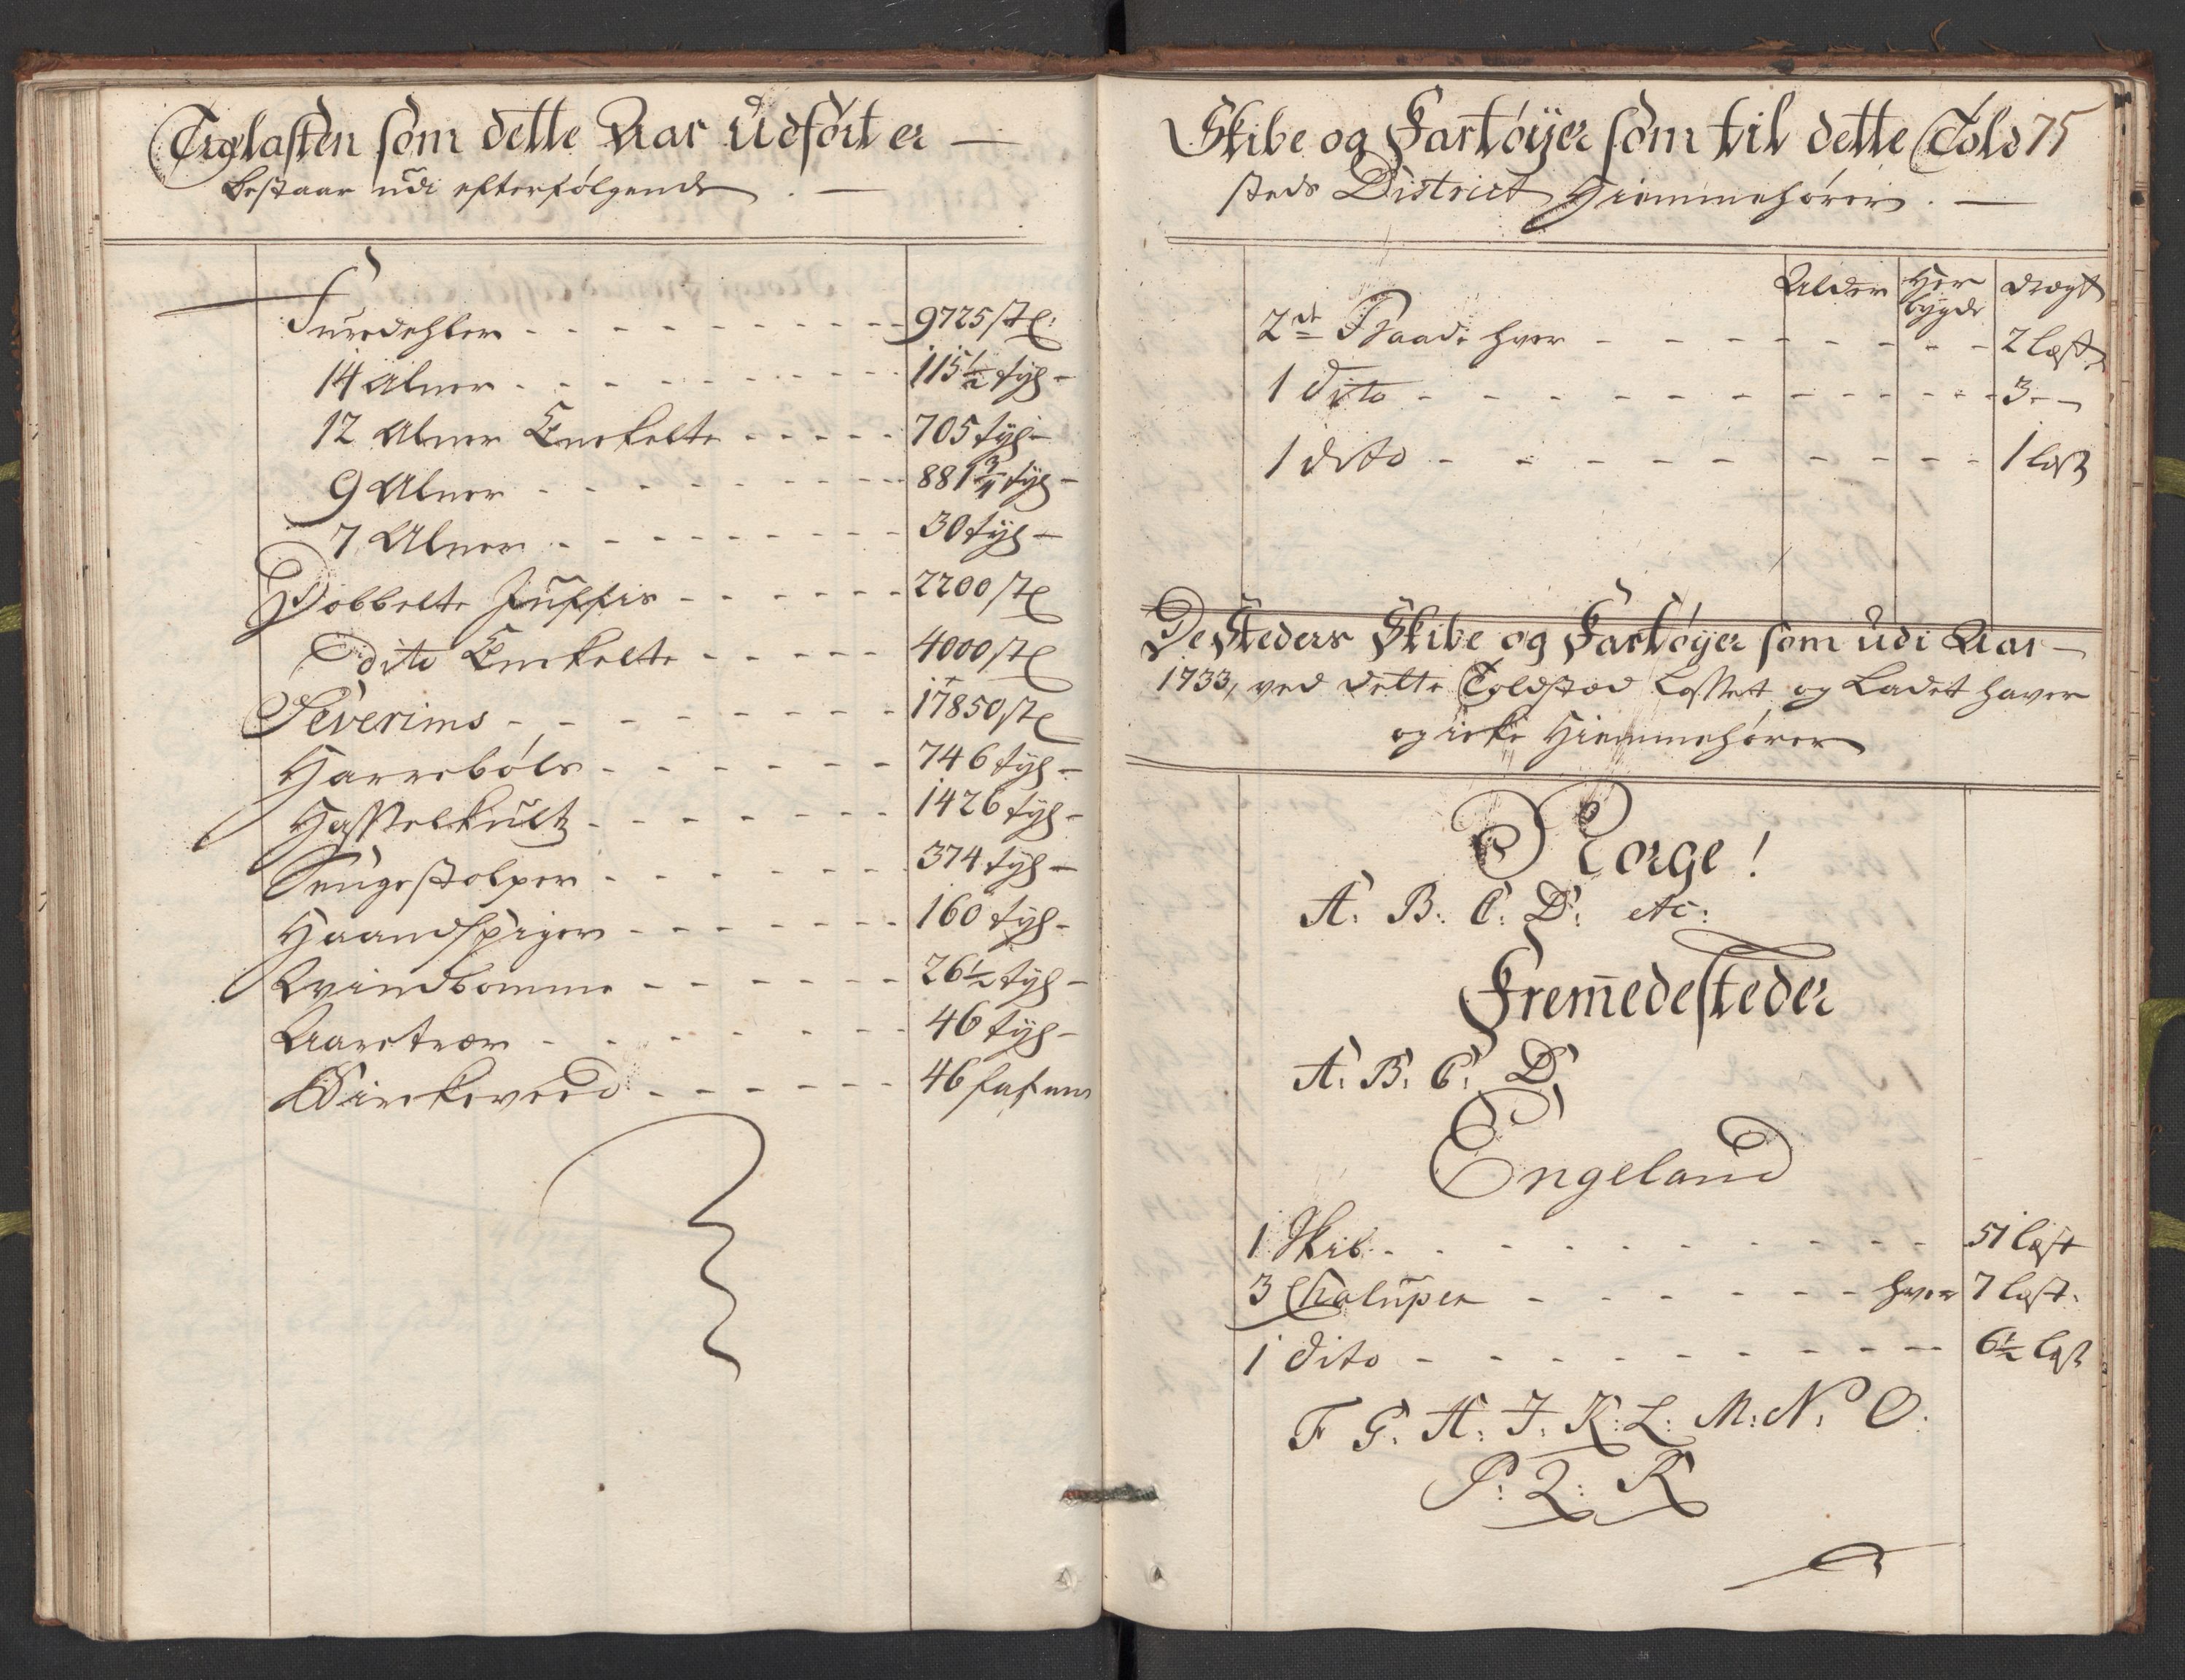 Træelasten som dette Aar Udført er —
bestaar udi efterfølgende . —
Furedehler - - - - - - - - - - - 9725 stk:
14 Alner - - - - - - - - - - - 115½ tÿl -
12 Alner Enckelte - - - - - 705 tÿl -
9 Alner - - - - - - - - - - 881¾ tÿl -
7 Alner - - - - - - - - - - 30 tÿl -
Dobbelte Juffer - - - - - - 2200 stk
Dito Enckelte - - - - - 4000 stk
Severims - - - - - - - - - 17850 stk
Harrebôls - - - - - - - 746 tÿl -
Hasselkult - - - - - - - 1426 tÿl -
Sengestolper - - - - - - 374 tÿl -
Haandspiger - - - - - - 160 tÿl -
Qvindbomme - - - - - - 26½ tÿl -
Aaretræer - - - - - - - 46 tÿl -
Birckeveed - - - - - - 46 fafnn
Skibe og Fartøÿer som til dette Told 75
steds District Hiemmehører . —
Alder Her bygde drægt
2de Baade hver - - - - - - - - - 2 læst
1 Dito - - - - - - - - - - - - 3 - -
1 dito - - - - - - - - - - - 1 læst
De Steders Skibe og Fartøyer som udi Aar —
1733, ved dette Toldsted Losset og Ladet haver
og icke Hiemmehører
Norge!
A. B. C. D. etc:
Fremedesteder
A. B. C. D
Engeland
1 Skib - - - - - - - - - - - 51 læst
3 Chaluper - - - - - - - hver 7 læst.
1 dito - - - - - - - - - - 6½ læst
F G. H. I. K. L. M. N. O.
P. Q. R